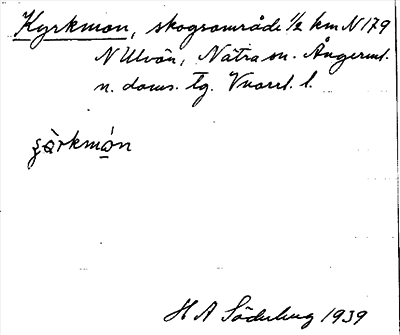 Kyrkmon, skogsområde ½ km N 179
N Ulvön, Nätra sn. Ångerml.
n. doms. tg. Vnorrl. l.
H A Söderberg 1939